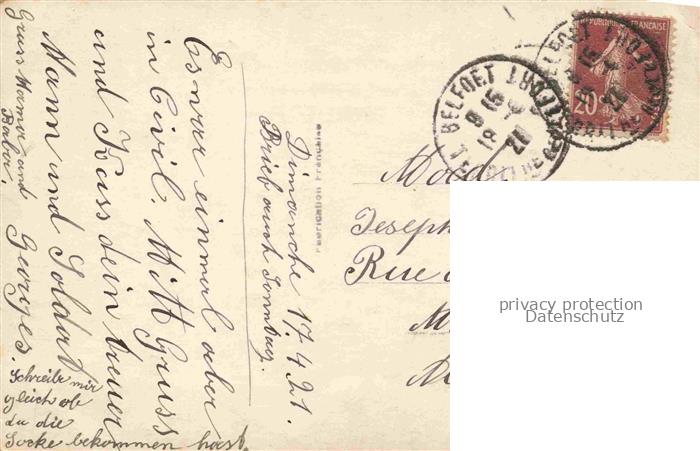 Dimanche 17.4.21.
Brief auch Sonntag.
Es war einmal aber
in Civil. Mitt Gruss
und Kuss dein treuer
Mann und Soldat
Georges
Gruss Mama und
Schreibe mir
gleich ob
du die
Socke bekommen hast.
Fabrication Française
BELFORT
9 15
18
FRANÇAISE
20
Joseph
Rue
privacy protection
Datenschutz